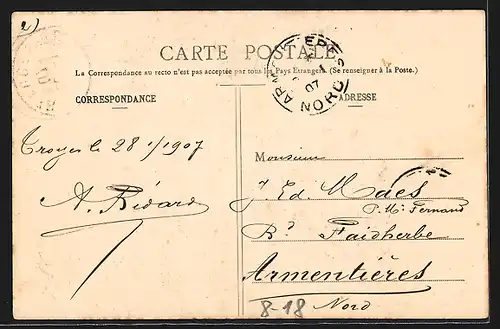 2)
CARTE POSTALE
La Correspondance au recto n'est pas acceptée par tous les Pays Etrangers. (Se renseigner à la Poste.)
CORRESPONDANCE
ADRESSE
NORD
07
Troyes le 28 1/1907
A. Bédard
Monsieur
J. Ed. Maes
P. Mr. Fernand
Bd Faidherbe
Armentières
Nord
8-18